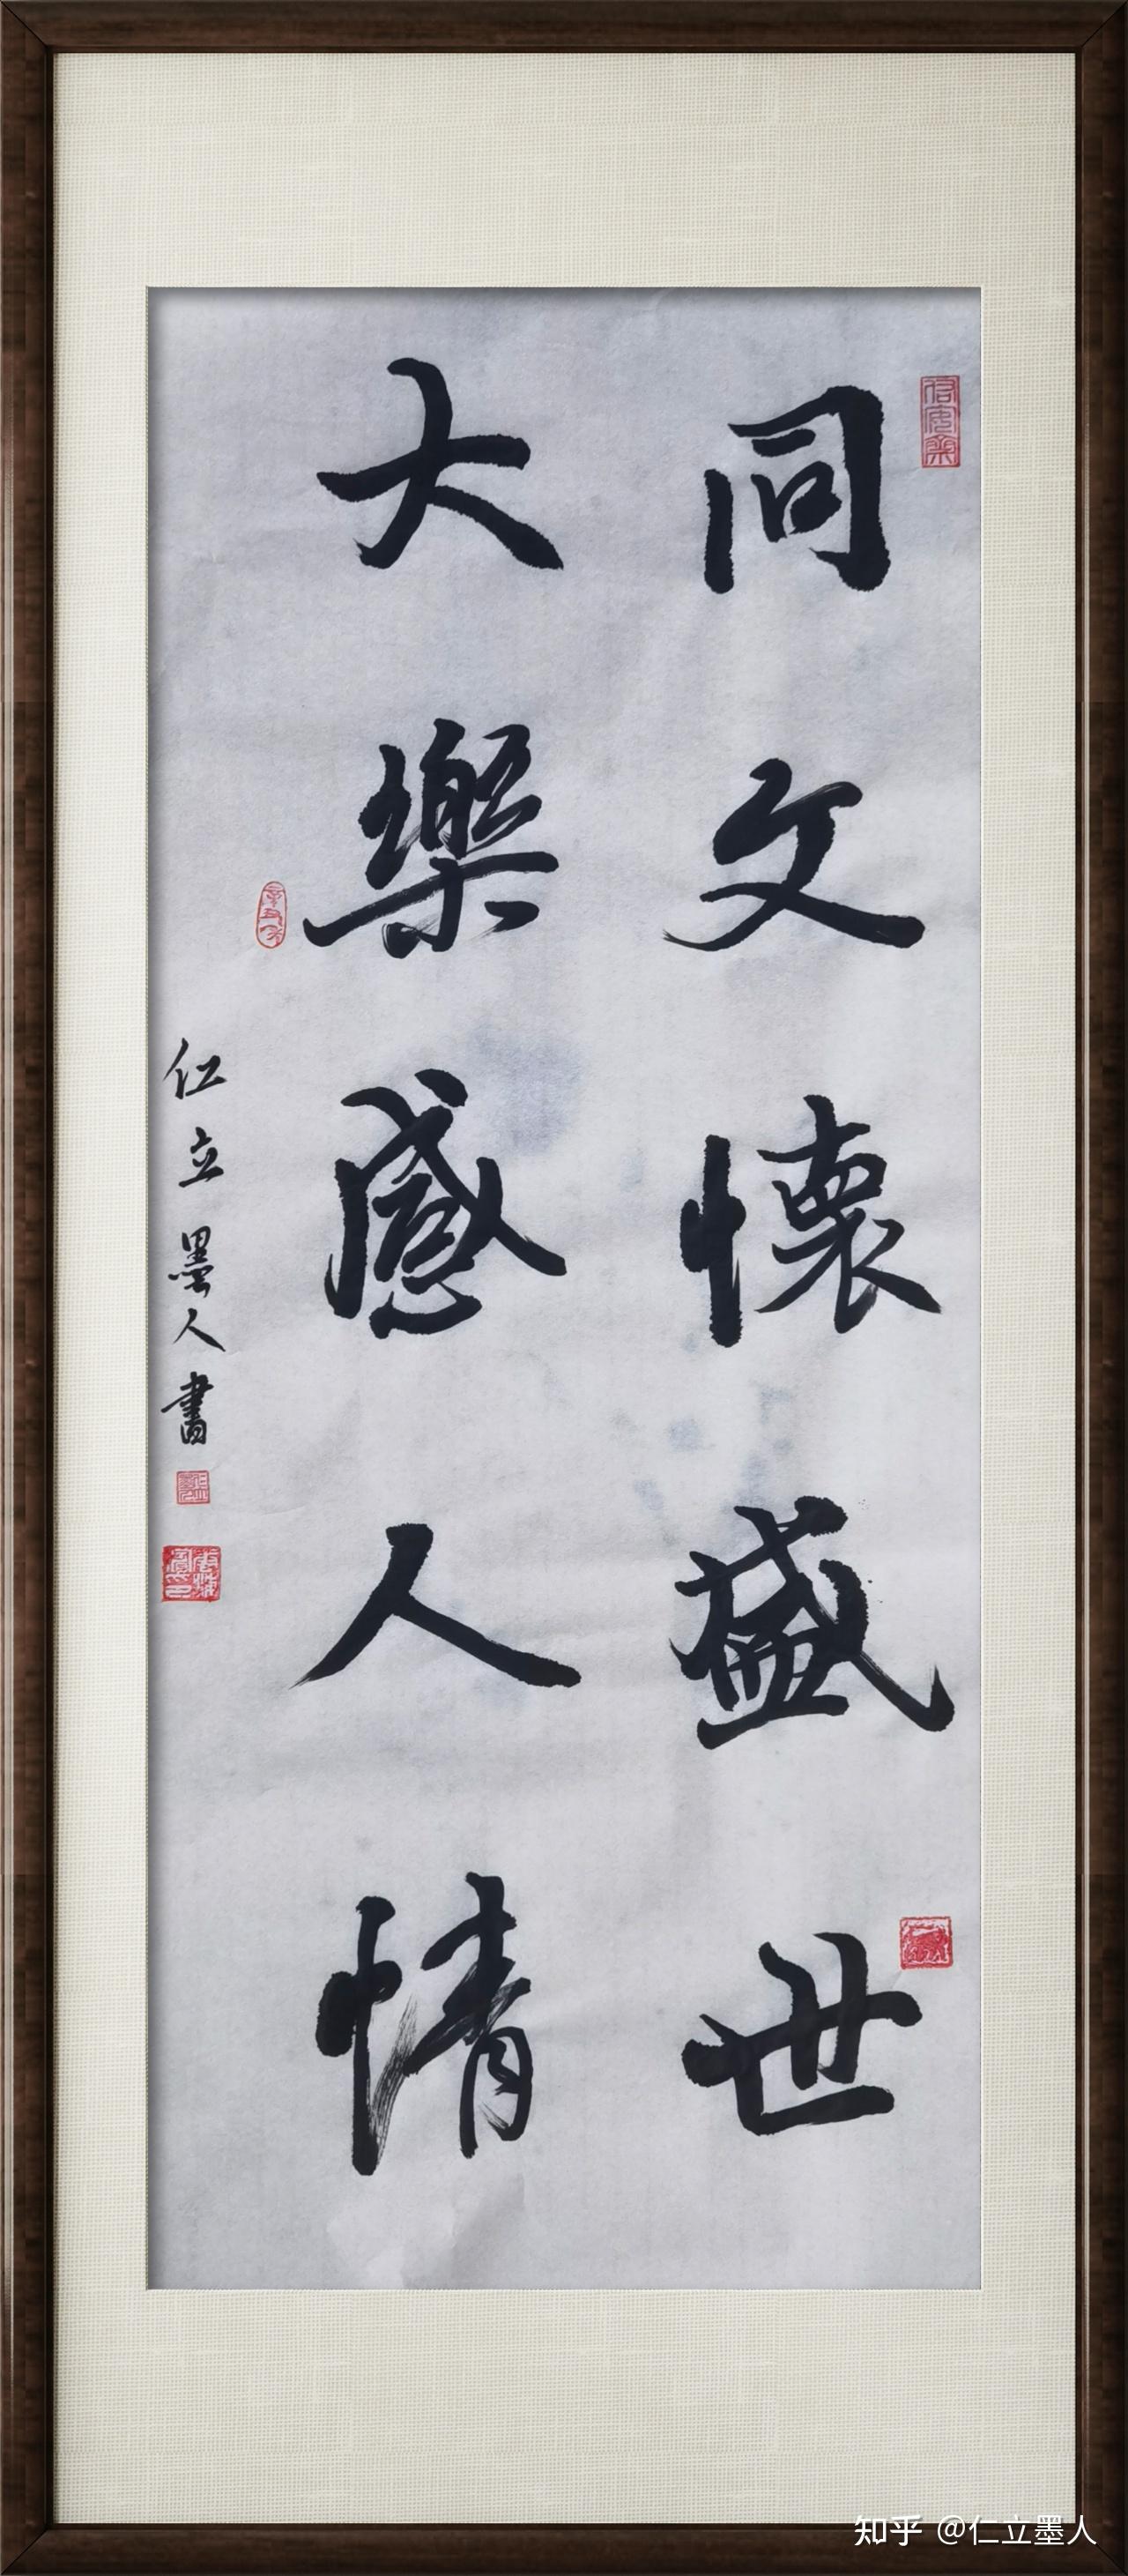 同文懷盛世
大樂感人情
仁立墨人書
知乎 @仁立墨人